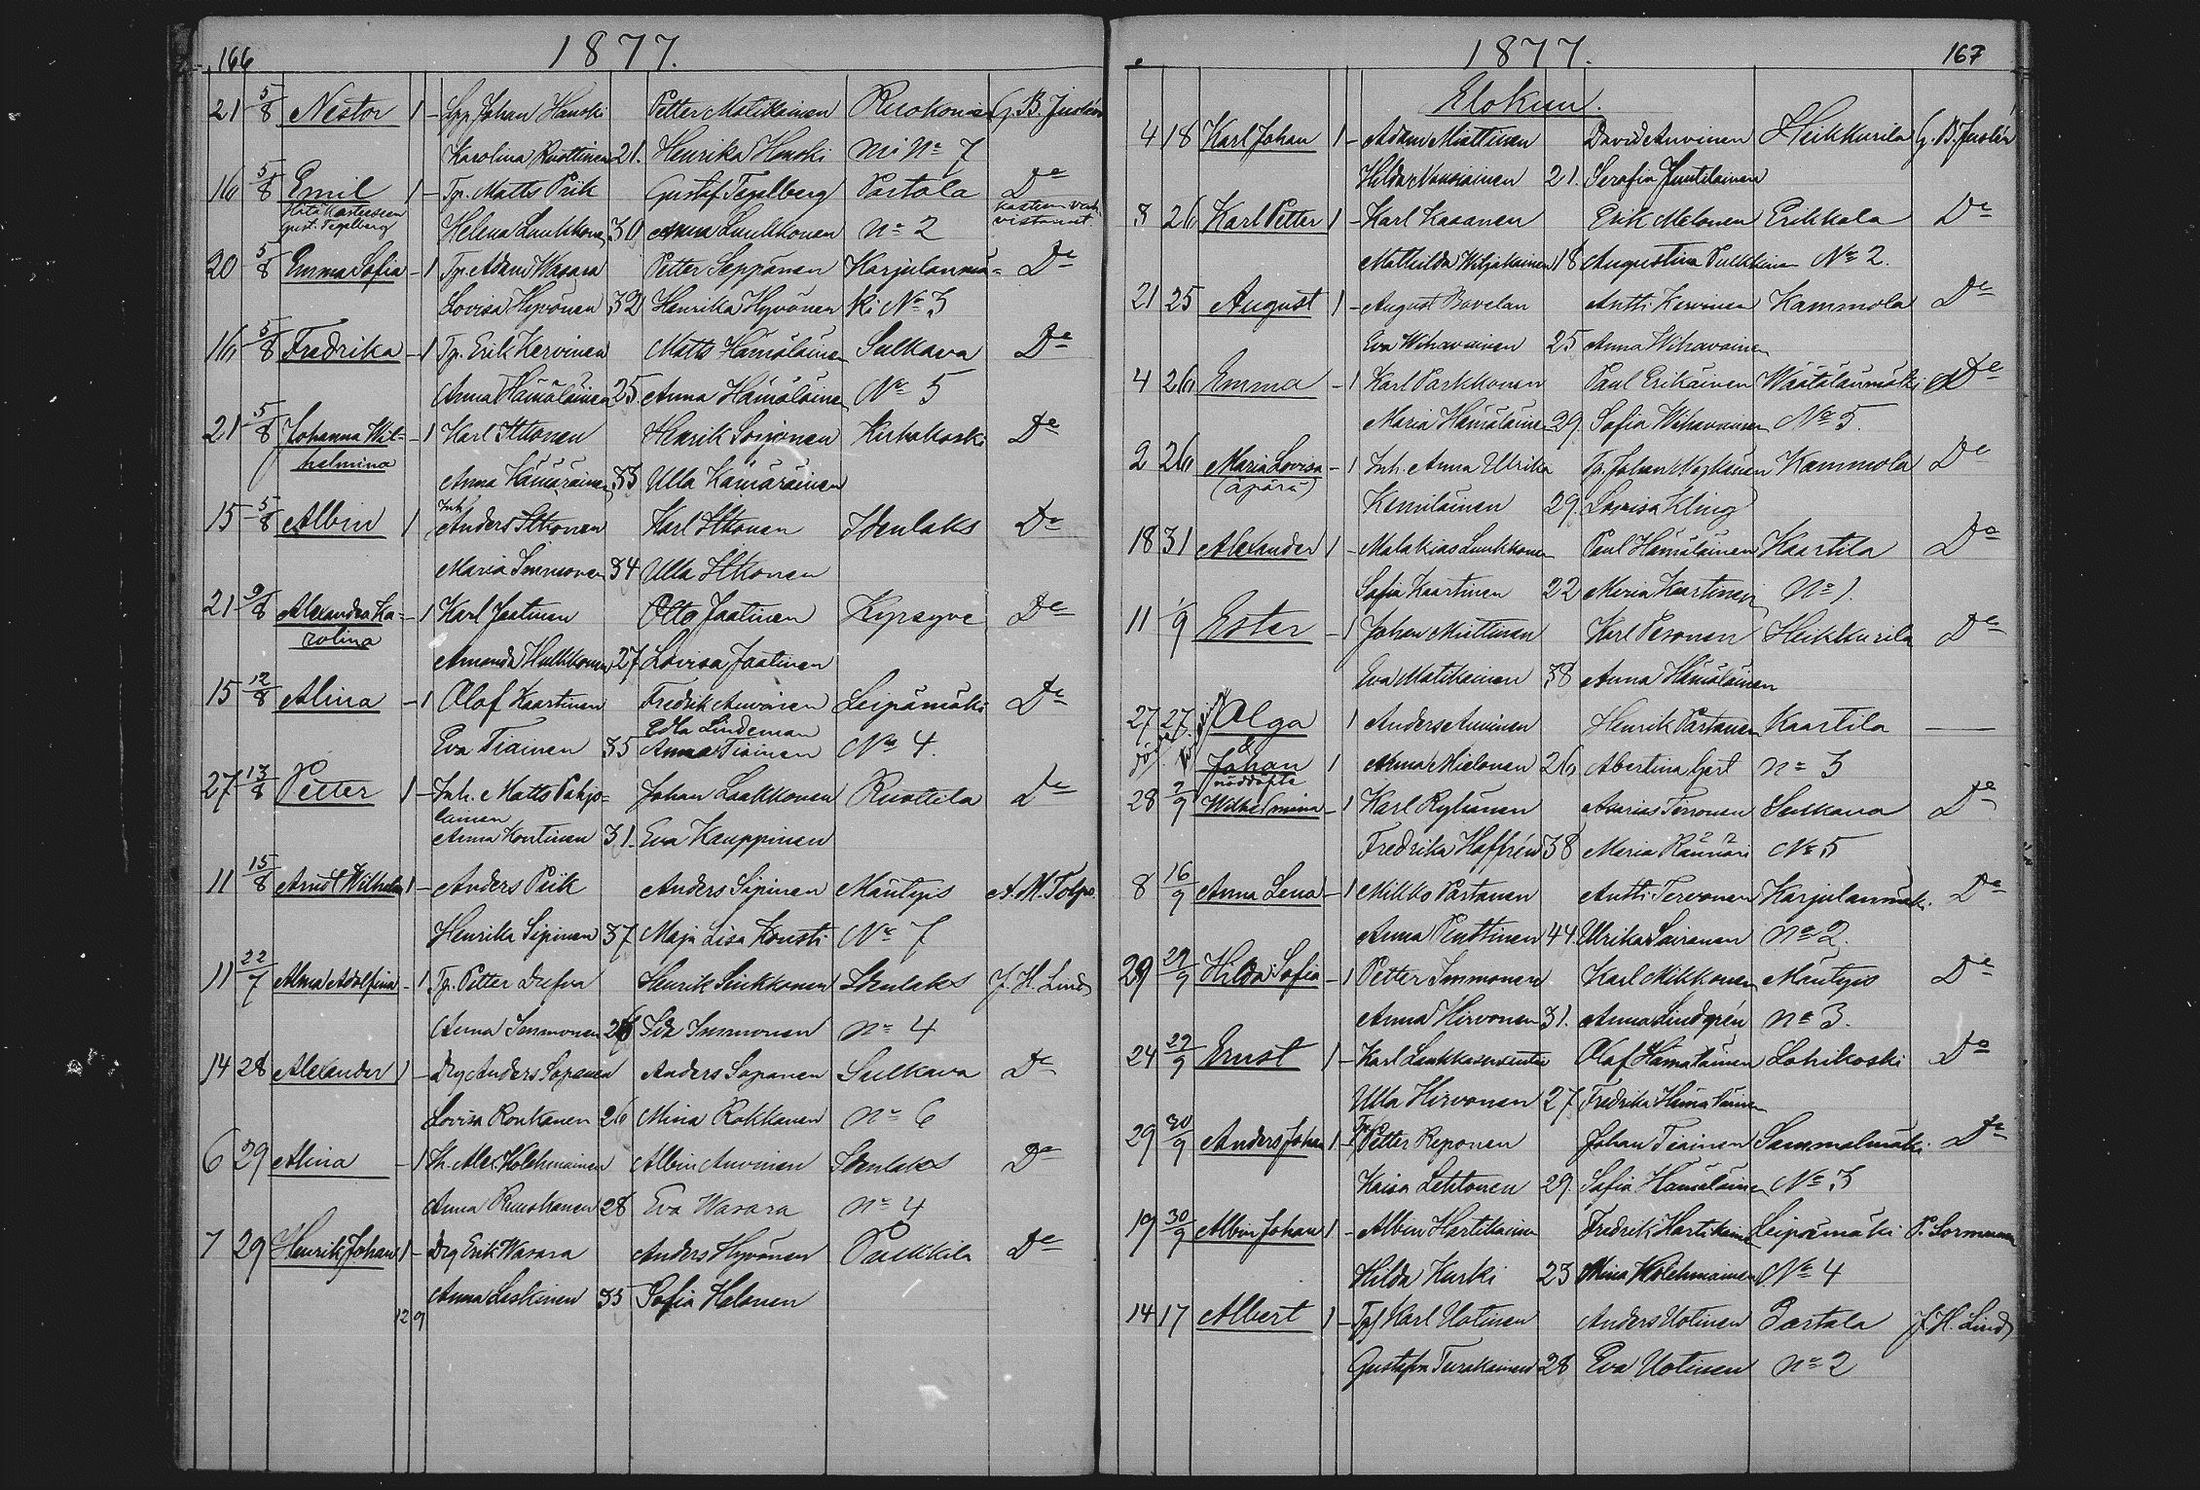 166 1877.
21 5/8 Nestor 1 - Johan Hanski Petter Matikainen Ruokonie G. B. Justén
Karolina Ruottinen 21. Henrika Hanski mi No 7
16 5/8 Emil 1 - Tp. Matts Piik Gustaf Tegelberg Partala Do
Hätä Kasteeseen kasteen vah-
Gust. Tegelberg vistanut.
Helena Luukkonen 30 Anna Luukkonen No 2
20 5/8 Emma Sofia - 1 Tp. Adam Wasara Petter Seppänen Karjulanmä- Do
Lovisa Hyvönen 32 Henrika Hyvönen ki No 3
16 5/8 Fredrika - 1 Tp. Erik Kervinen Matts Hämäläinen Sulkava Do
Anna Hämäläinen 25 Anna Hämäläinen No 5
21 5/8 Johanna Wil- - 1 Karl Ittonen Henrik Soijonen Kirhakoski Do
helmina
Anna Kämäräinen 33 Ulla Kämäräinen
15 5/8 Albin 1 Inh. Anders Ittonen Karl Ittonen Idenlaks Do
Maria Immonen 34 Ulla Itkonen
21 9/8 Alexandra Ka- - 1 Karl Jaatinen Otto Jaatinen Kyrsyve Do
rolina
Amanda Hulkkonen 27 Lovisa Jaatinen
15 12/8 Alina - 1 Olof Kaartinen Fredrik Auvinen Leipämäki Do
Edla Lindeman
Eva Tiainen 35 Anna Tiainen No 4.
27 13/8 Petter 1 - Inh. Matts Pohjo- Johan Laakkonen Ruottila Do
lainen
Anna Kontinen 31. Eva Kauppinen
11 15/8 Arndt Wilhelm 1 - Anders Piik Anders Sipinen Mäntyis A. M. Tolpo.
Henrika Sipinen 37 Maja Lisa Kousti No 7
11 22/7 Alma Adolfina - 1 Tp. Petter Dufva Henrik Sinkkonen Idenlaks J. H. Lind
Anna Immonen 26 Ida Immonen No 4
14 28 Alexander 1 - Drg Anders Sopanen Anders Sapanen Sulkava Do
Lovisa Ronkanen 26 Mina Rokkanen No 6
6 29 Alina - 1 Alex. Kolehmainen Albin Auvinen Idenlaks Do
Anna Ruuskanen 28 Eva Wasara No 4
7 29 Henrik Johan 1 - Drg Erik Wasara Anders Hyvönen Pulkkila Do
Anna Laskinen 35 Sofia Halonen
12 9
1877. 167
Elokuu.
4 18 Karl Johan 1 - Adam Miettinen David Auvinen Heikkurila G. B. Justén
Hilda Nousiainen 21. Serafia Juutilainen
3 26 Karl Petter 1 - Karl Kasanen Erik Melonen Erikkala Do
Mathilda Wiljakainen 18 Augustina Pulkkinen No 2.
21 25 August 1 - August Bovelan Antti Kervinen Kammola Do
Eva Wihavainen 25 Anna Wihavainen
4 26 Emma - 1 Karl Parkkonen Paul Erikäinen Wäätälänmäki Do
Maria Hämäläinen 29. Sofia Wihavainen No 5.
2 26 Maria Lovisa - 1 Inh. Anna Ulrika Tp. Johan Kammola Do
(äpärä) Kemiläinen 29 Lovisa Kling
18 31 Alexander 1 - Malakias Luukkonen Paul Hämäläinen Kaartila Do
Sofia Kaartinen 22 Maria Kaartinen No 1.
11 1/9 Ester - 1 Johan Miettinen Karl Pesonen Heikkurila Do
Eva Matikainen 38 Anna Hämäläinen
27 27 Olga 1 Anders Auvinen Henrik Partanen Kaartila —
& Johan 1 Anna Mielonen 26 Abertina Gert No 3
nöddöpta
28 2/9 Wilhelmina - 1 Karl Rytkönen Asarias Tervonen Sulkava Do
Fredrika Haffrén 38 Maria Rännäri No 5
8 16/9 Anna Lena - 1 Mikko Partanen Antti Tervonen Karjulanmäki Do
Anna Penttinen 44. Ulrika Sairanen No 2.
29 29/9 Hilda Sofia - 1 Petter Immonen Karl Mikkonen Mäntyis Do
Anna Hirvonen 31. Anna Lindgrén No 3.
24 29/9 Ernst 1 - Karl Olof Hämäläinen Lohikoski Do
Ulla Hirvonen 27 Fredrika Hämäläinen
29 30/9 Anders Johan 1 Petter Reponen Johan Tiainen Sammalmäki. Do
Kaisa Lehtonen 29. Sofia Hämäläinen No 3
19 30/9 Albin Johan 1 - Albin Hartikainen Fredrik Hartikainen Leipämäki P. Sormunen
Hilda Kurki 23 Mina Kolehmainen No 4
14 17 Albert 1 - Tp. Karl Uotinen Anders Uotinen Partala J. H. Lind
Gustafva Turakainen 28 Eva Uotinen No 2